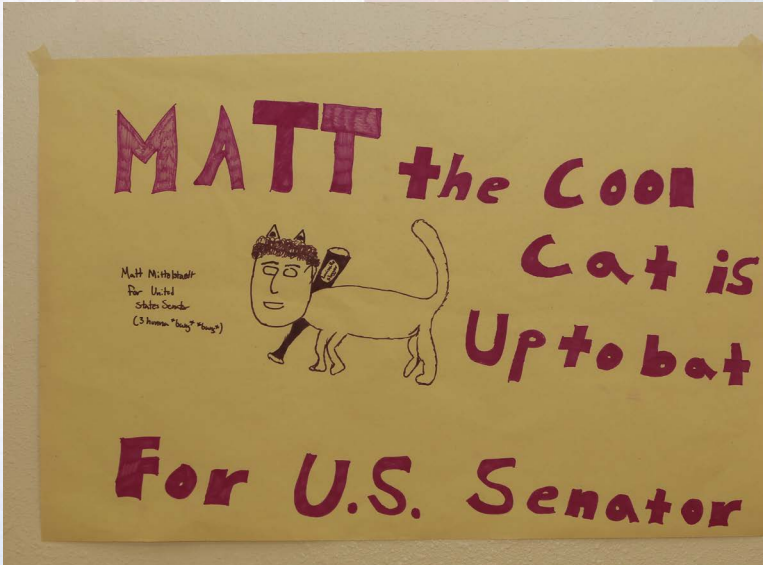 MATT the Cool
Cat is
Up to bat
Matt Mittelstaedt
For United
States Senator
(3 *bwg* *bwg*)
For U.S. Senator